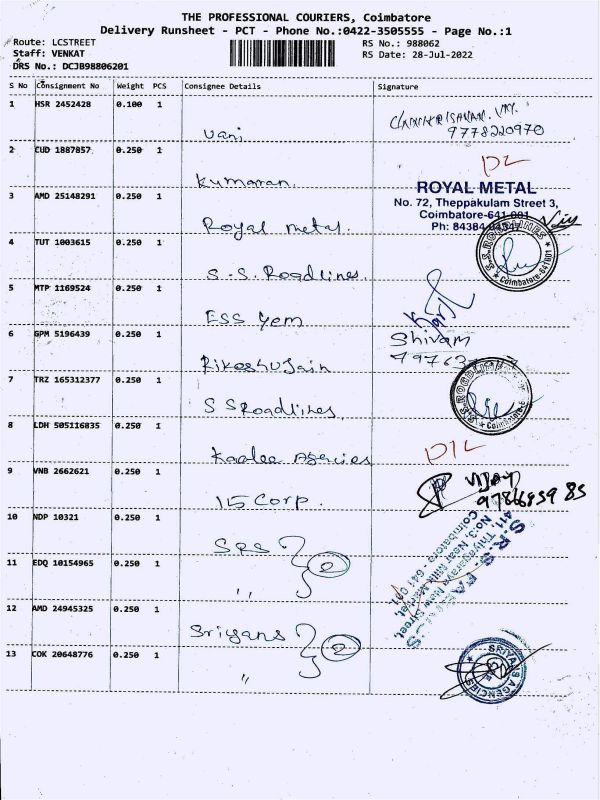 THE PROFESSIONAL COURIERS, Coimbatore
Delivery Runsheet - PCT - Phone No.:0422-3505555 - Page No.:1
Route: LCSTREET
RS No.: 988062
Staff: VENKAT
RS Date: 28-Jul-2022
DRS No.: DCJB98806201
S No Consignment No Weight PCS Consignee Details Signature
1 HSR 2452428 0.100 1
Vani
9778220970
2 CUD 1887857 0.250 1
Kumaran
DL
3 AMD 25148291 0.250 1
Royal metal.
ROYAL METAL
No. 72, Theppakulam Street 3,
Coimbatore-641 001
Ph: 84384
4 TUT 1003615 0.250 1
S.S. Roadlines.
S.S. ROADLINES
Coimbatore-641001
5 MTP 1169524 0.250 1
ESS Yem
6 GPM 5196439 0.250 1
Rikesh Jain
Shivam
7 TRZ 165312377 0.250 1
S S Roadlines
8 LDH 505116835 0.250 1
Kaalee Agencies
D1L
9 VNB 2662621 0.250 1
115 Corp.
VIJAY
10 NDP 10321 0.250 1
SRS
2
11 EDQ 10154965 0.250 1
"
12 AMD 24945325 0.250 1
Sriyans
2
13 COK 20648776 0.250 1
"
SRIYANS AGENCIES